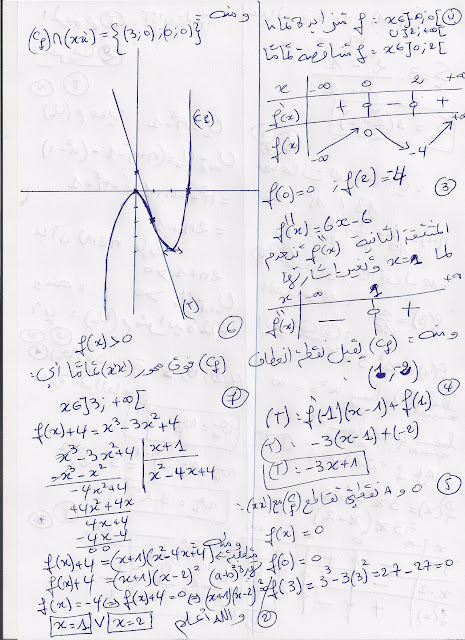 x∈]-∞;0[ : f متزايدة تماما
U]2;+∞[
x∈]0;2[ : f متناقصة تماما
x -∞ 0 2 +∞
f'(x) + 0 - 0 +
f(x) -∞ 0 -4 +∞
f(0)=0 ; f(2)=-4
③
f''(x)=6x-6
المشتقة الثانية f''(x) تنعدم
لما x=1 وتغير إشارتها
x -∞ 1 +∞
f''(x) - 0 +
ومنه: (Cf) يقبل نقطة انعطاف
(1,-2)
④
(T): f'(1)(x-1)+f(1)
(T): -3(x-1)+(-2)
(T): -3x+1
⑤
O و A نقطتي تقاطع (Cf) مع (xx'):
f(x)=0
f(0)=0
f(3)=3³-3(3)²=27-27=0
ومنه:
(Cf)∩(xx')={(3;0),(0;0)}
(Cf)
(T)
⑥
f(x)>0
(Cf) فوق محور (xx') تماما أي:
x∈]3;+∞[
f(x)+4=x³-3x²+4
x³-3x²+4 | x+1
-x³-x² | x²-4x+4
-4x²+4
+4x²+4x
4x+4
-4x-4
0 0
ومنه
f(x)+4=(x+1)(x²-4x+4)
(a-b)²
f(x)+4=(x+1)(x-2)²
f(x)=-4⇔f(x)+4=0⇔(x+1)(x-2)²
x=1 V x=2
والله أعلم
②